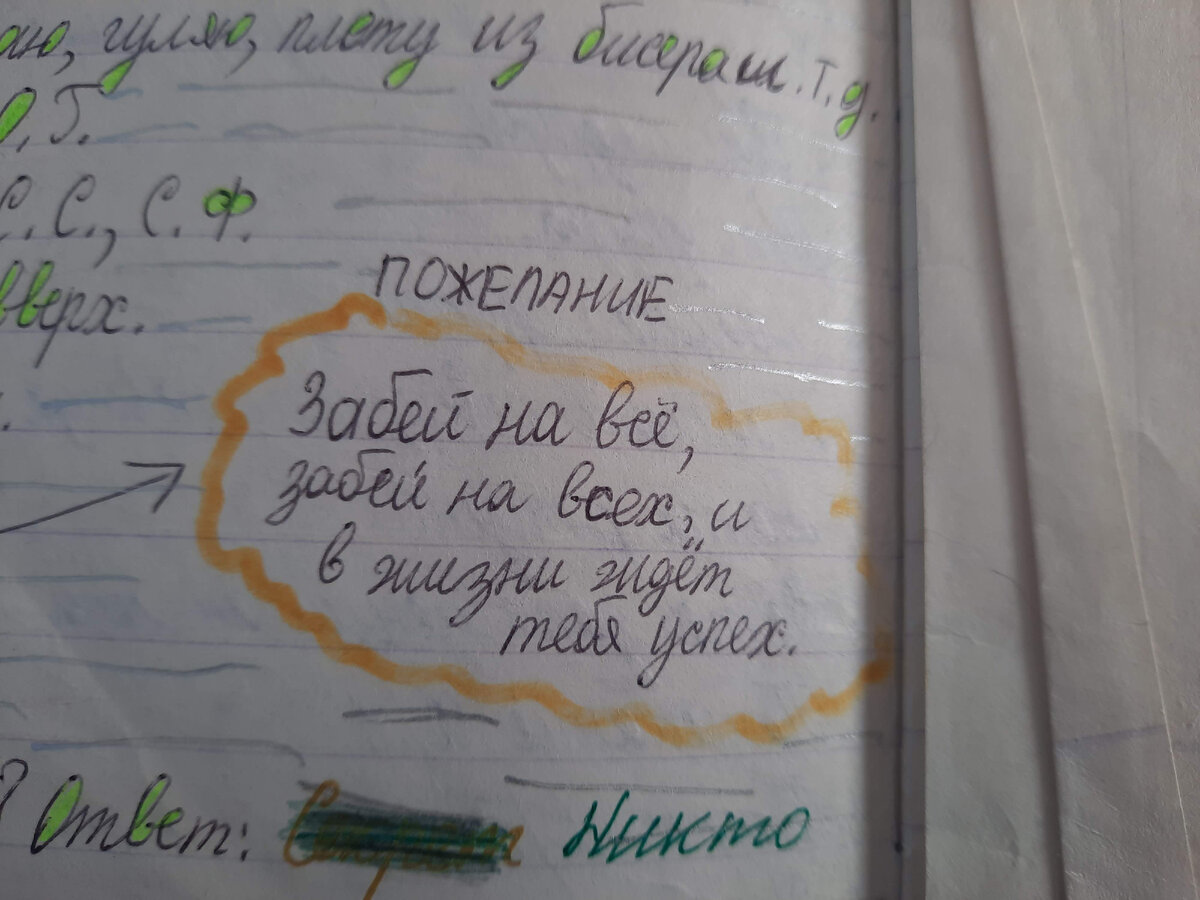 гуляю, плету из бисера и т.д.
Г.
С.С., С.Ф.
вверх.
ПОЖЕЛАНИЕ
Забей на всё,
забей на всех, и
в жизни ждёт
тебя успех.
? Ответ: Никто